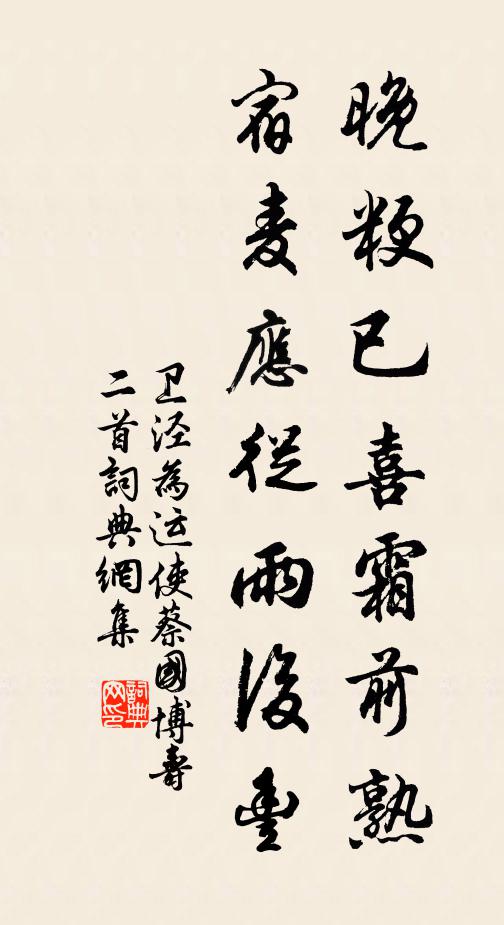 晚粳已喜霜前熟
宿麦應從雨後豐
卫泾為运使蔡國博壽
二首詞典網集
詞典网印